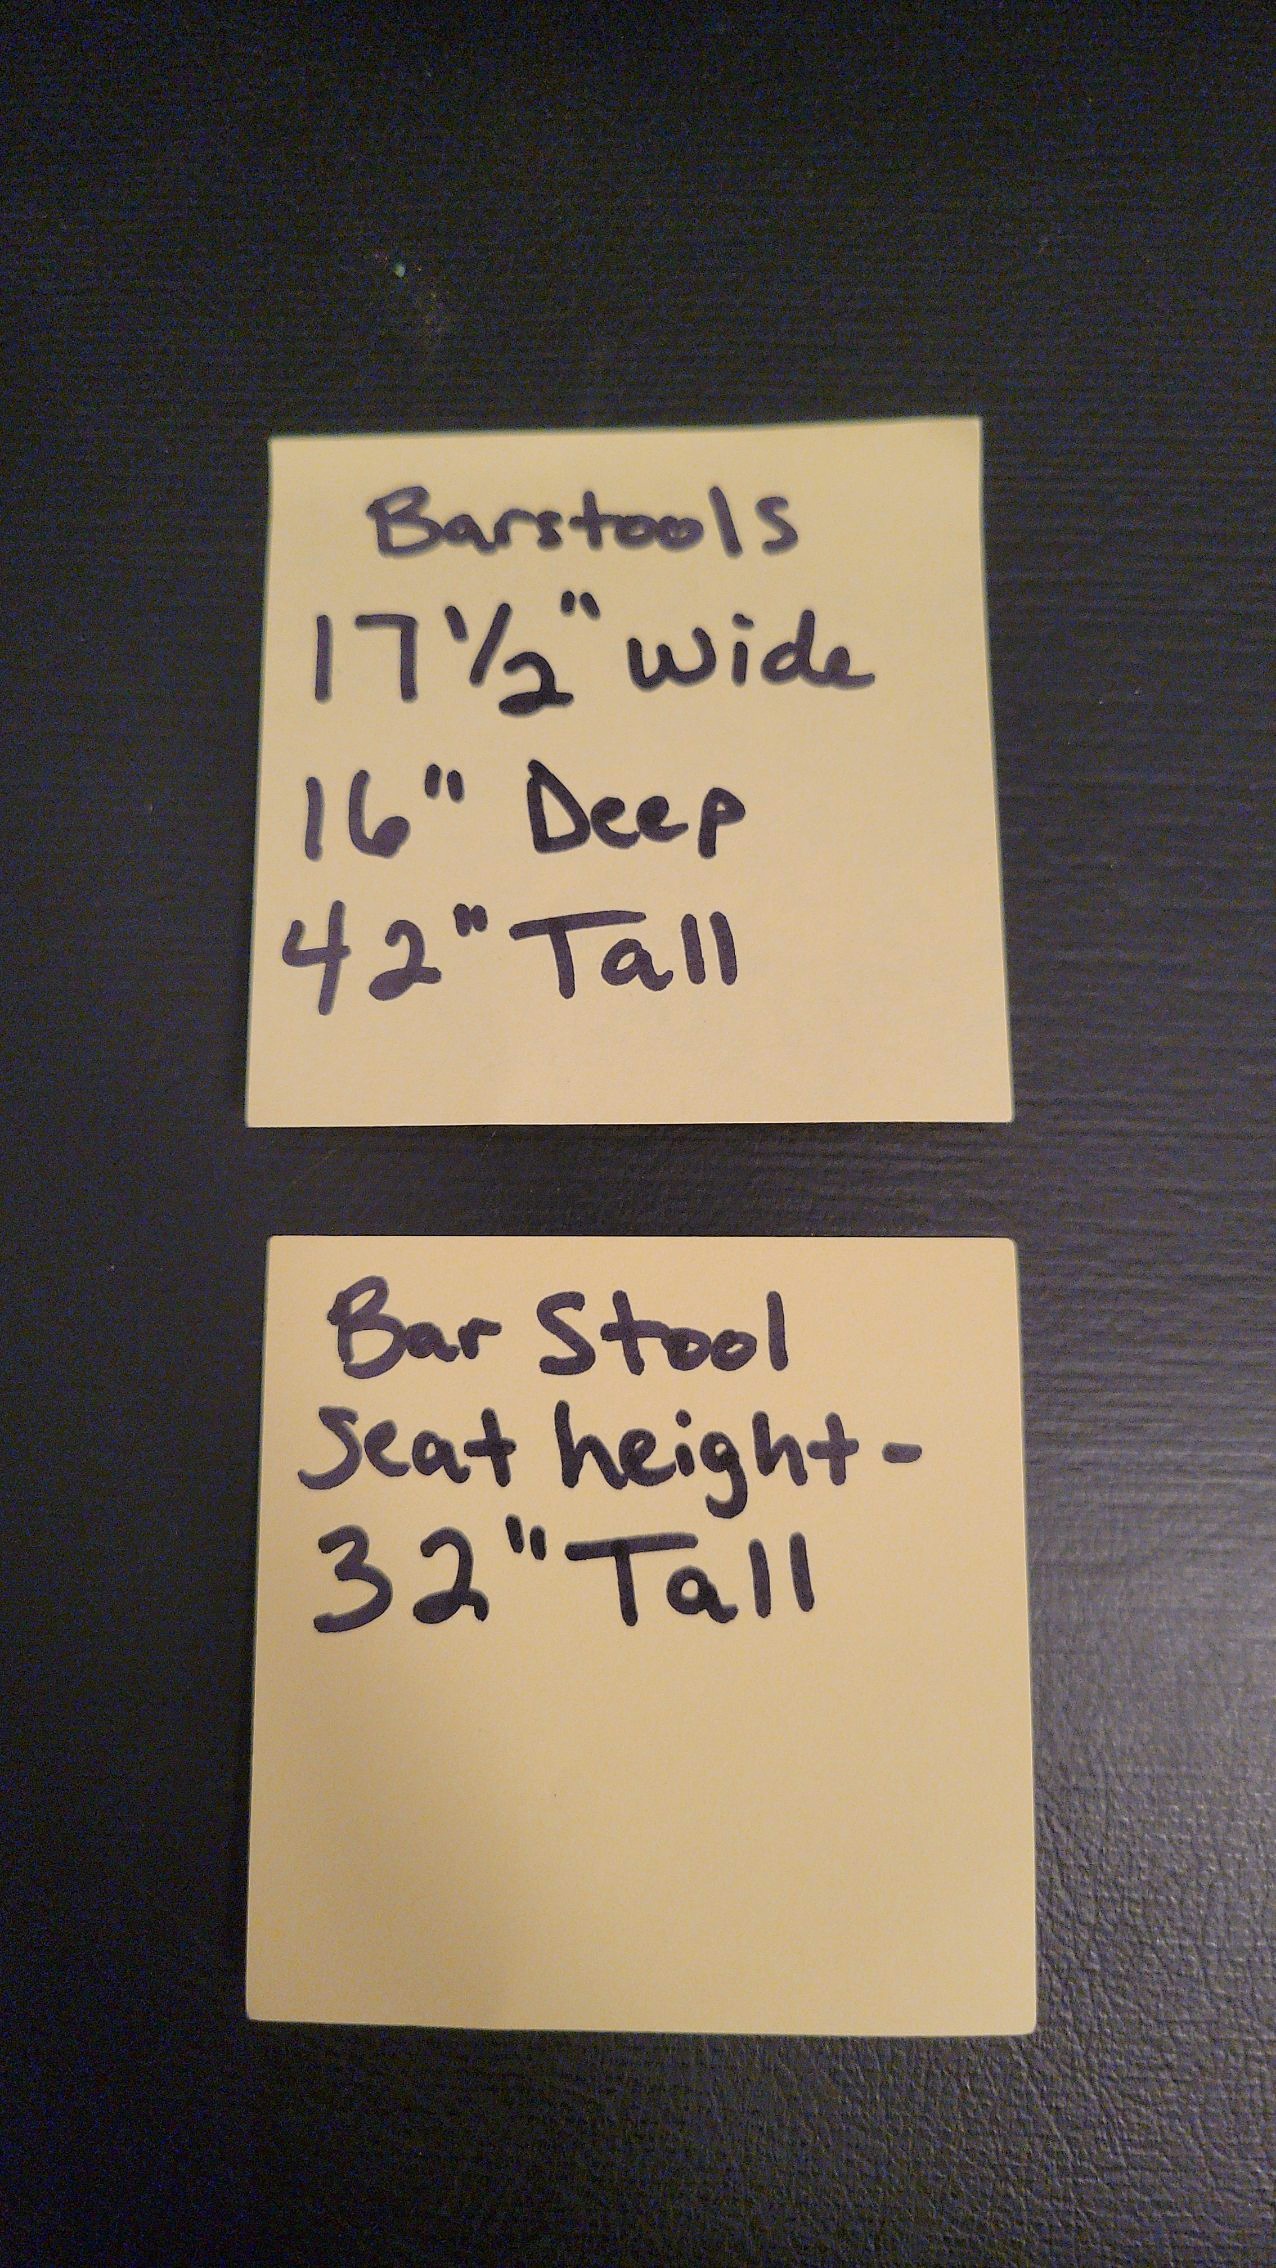 Barstools
17 1/2" wide
16" Deep
42" Tall
Bar Stool
seat height-
32" Tall